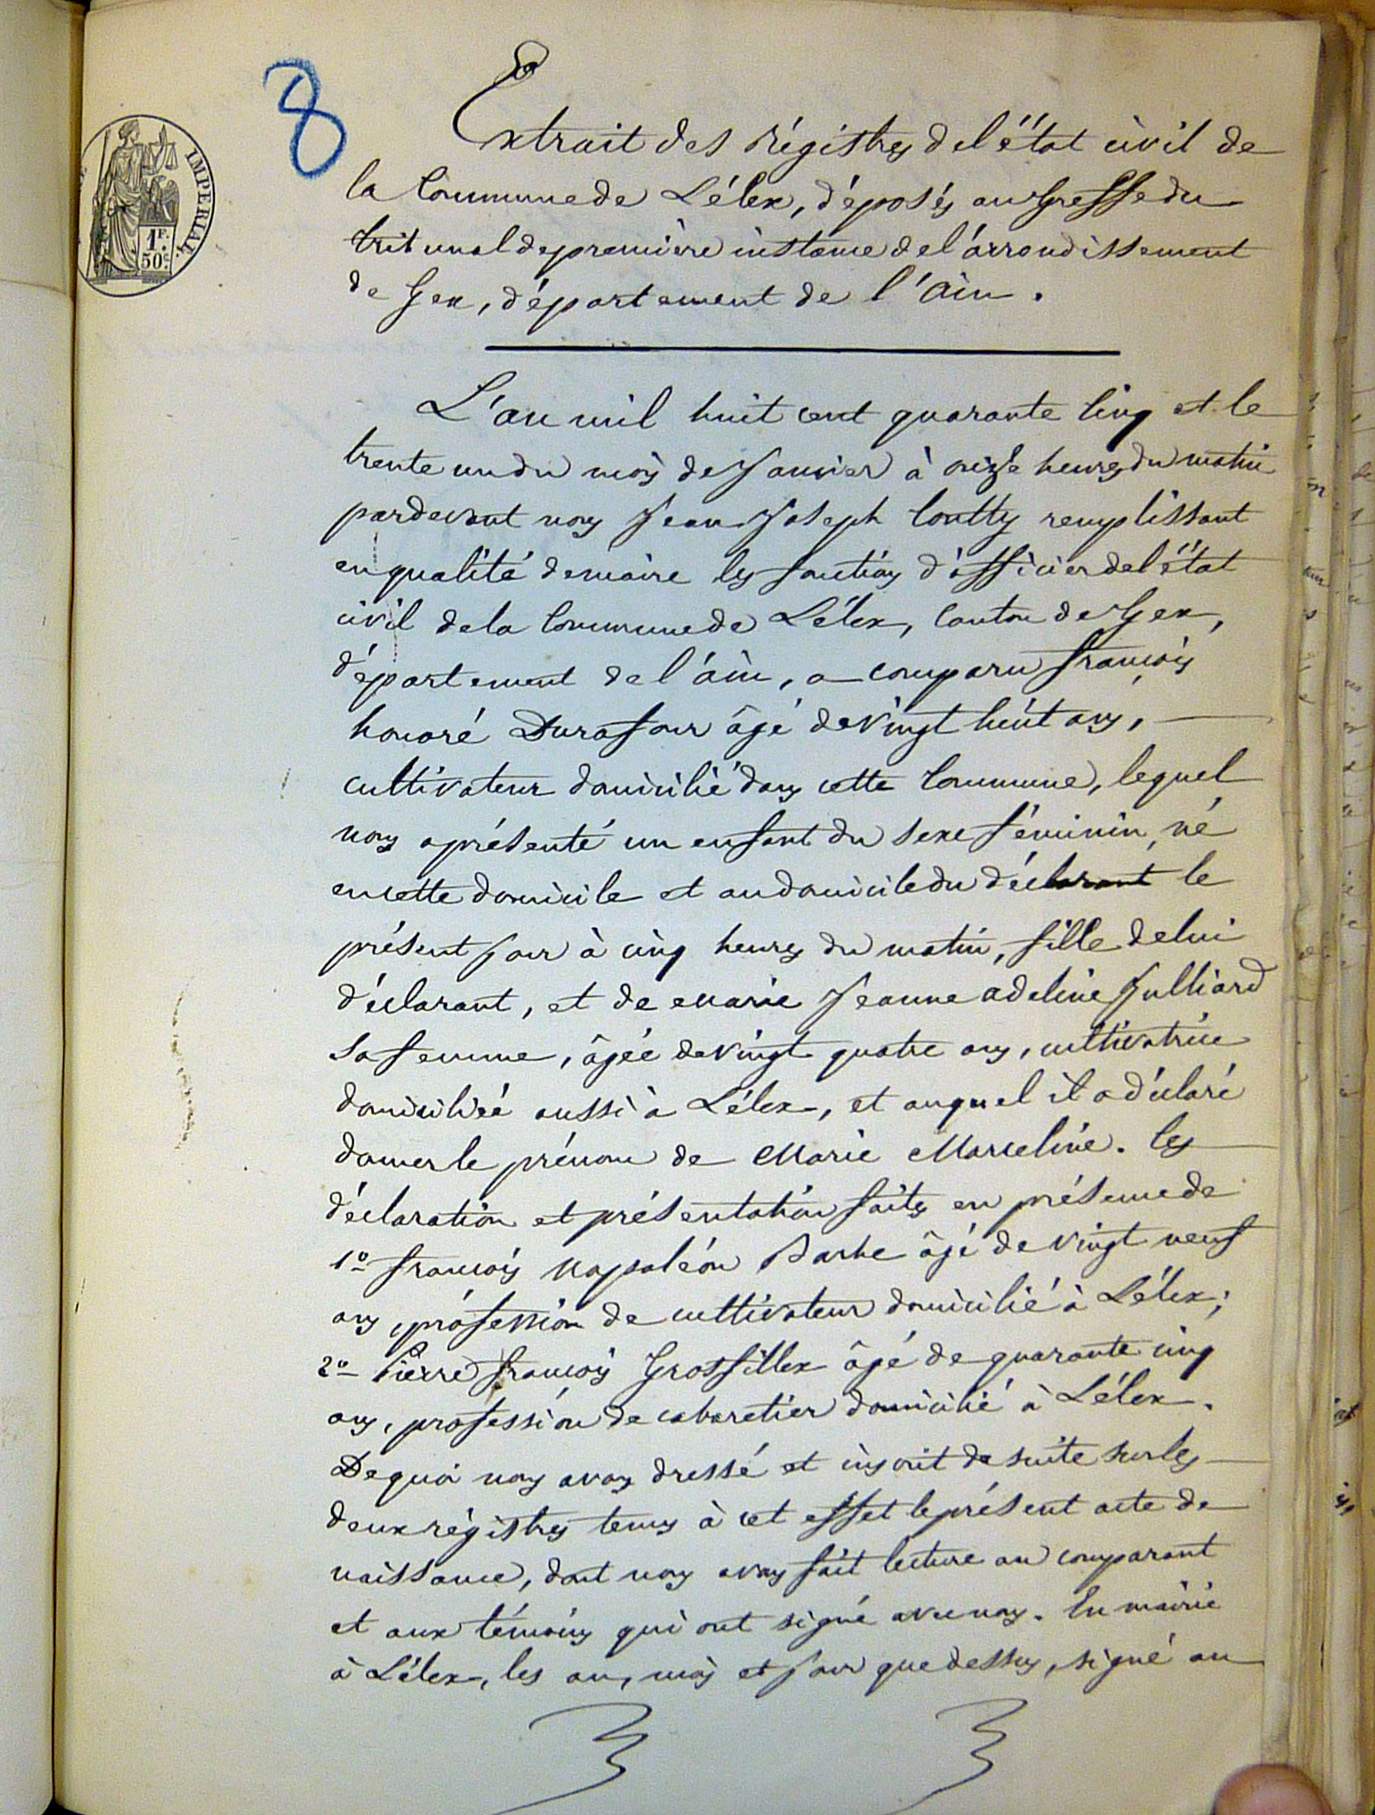 8
IMPERIAL.
1F.
50c.
Extrait des régistres de l'état civil de
la Commune de Lélex, déposés au greffe du
tribunal de première instance de l'arrondissement
de Gex, département de l'Ain.
L'an mil huit cent quarante cinq et le
trente un du mois de Janvier à onze heures du matin
pardevant nous Jean Joseph Coutty remplissant
en qualité de maire les fonctions d'officier de l'état
civil de la Commune de Lélex, Canton de Gex,
département de l'ain, a comparu françois
honoré Durafour âgé de vingt huit ans,
cultivateur domicilié dans cette Commune, lequel
nous a présenté un enfant du sexe féminin, né
en cette domicile et au domicile du déclarant le
présent jour à cinq heures du matin, fille de lui
déclarant, et de marie Jeanne adeline Julliard
sa femme, âgée de vingt quatre ans, cultivatrice
domiciliée aussi à Lélex, et auquel il a déclaré
donner le prénom de Marie Marceline. les
déclaration et présentation faites en présence de
1o françois Napoléon âgé de vingt neuf
ans, profession de cultivateur domicilié à Lélex;
2o Pierre françois Grosfillex âgé de quarante cinq
ans, profession de cabaretier domicilié à Lélex.
De quoi nous avons dressé et inscrit de suite sur les
deux régistres tenus à cet effet le présent acte de
naissance, dont nous avons fait lecture au comparant
et aux témoins qui ont signé avec nous. En mairie
à Lélex, les an, mois et jour que dessus, signé au